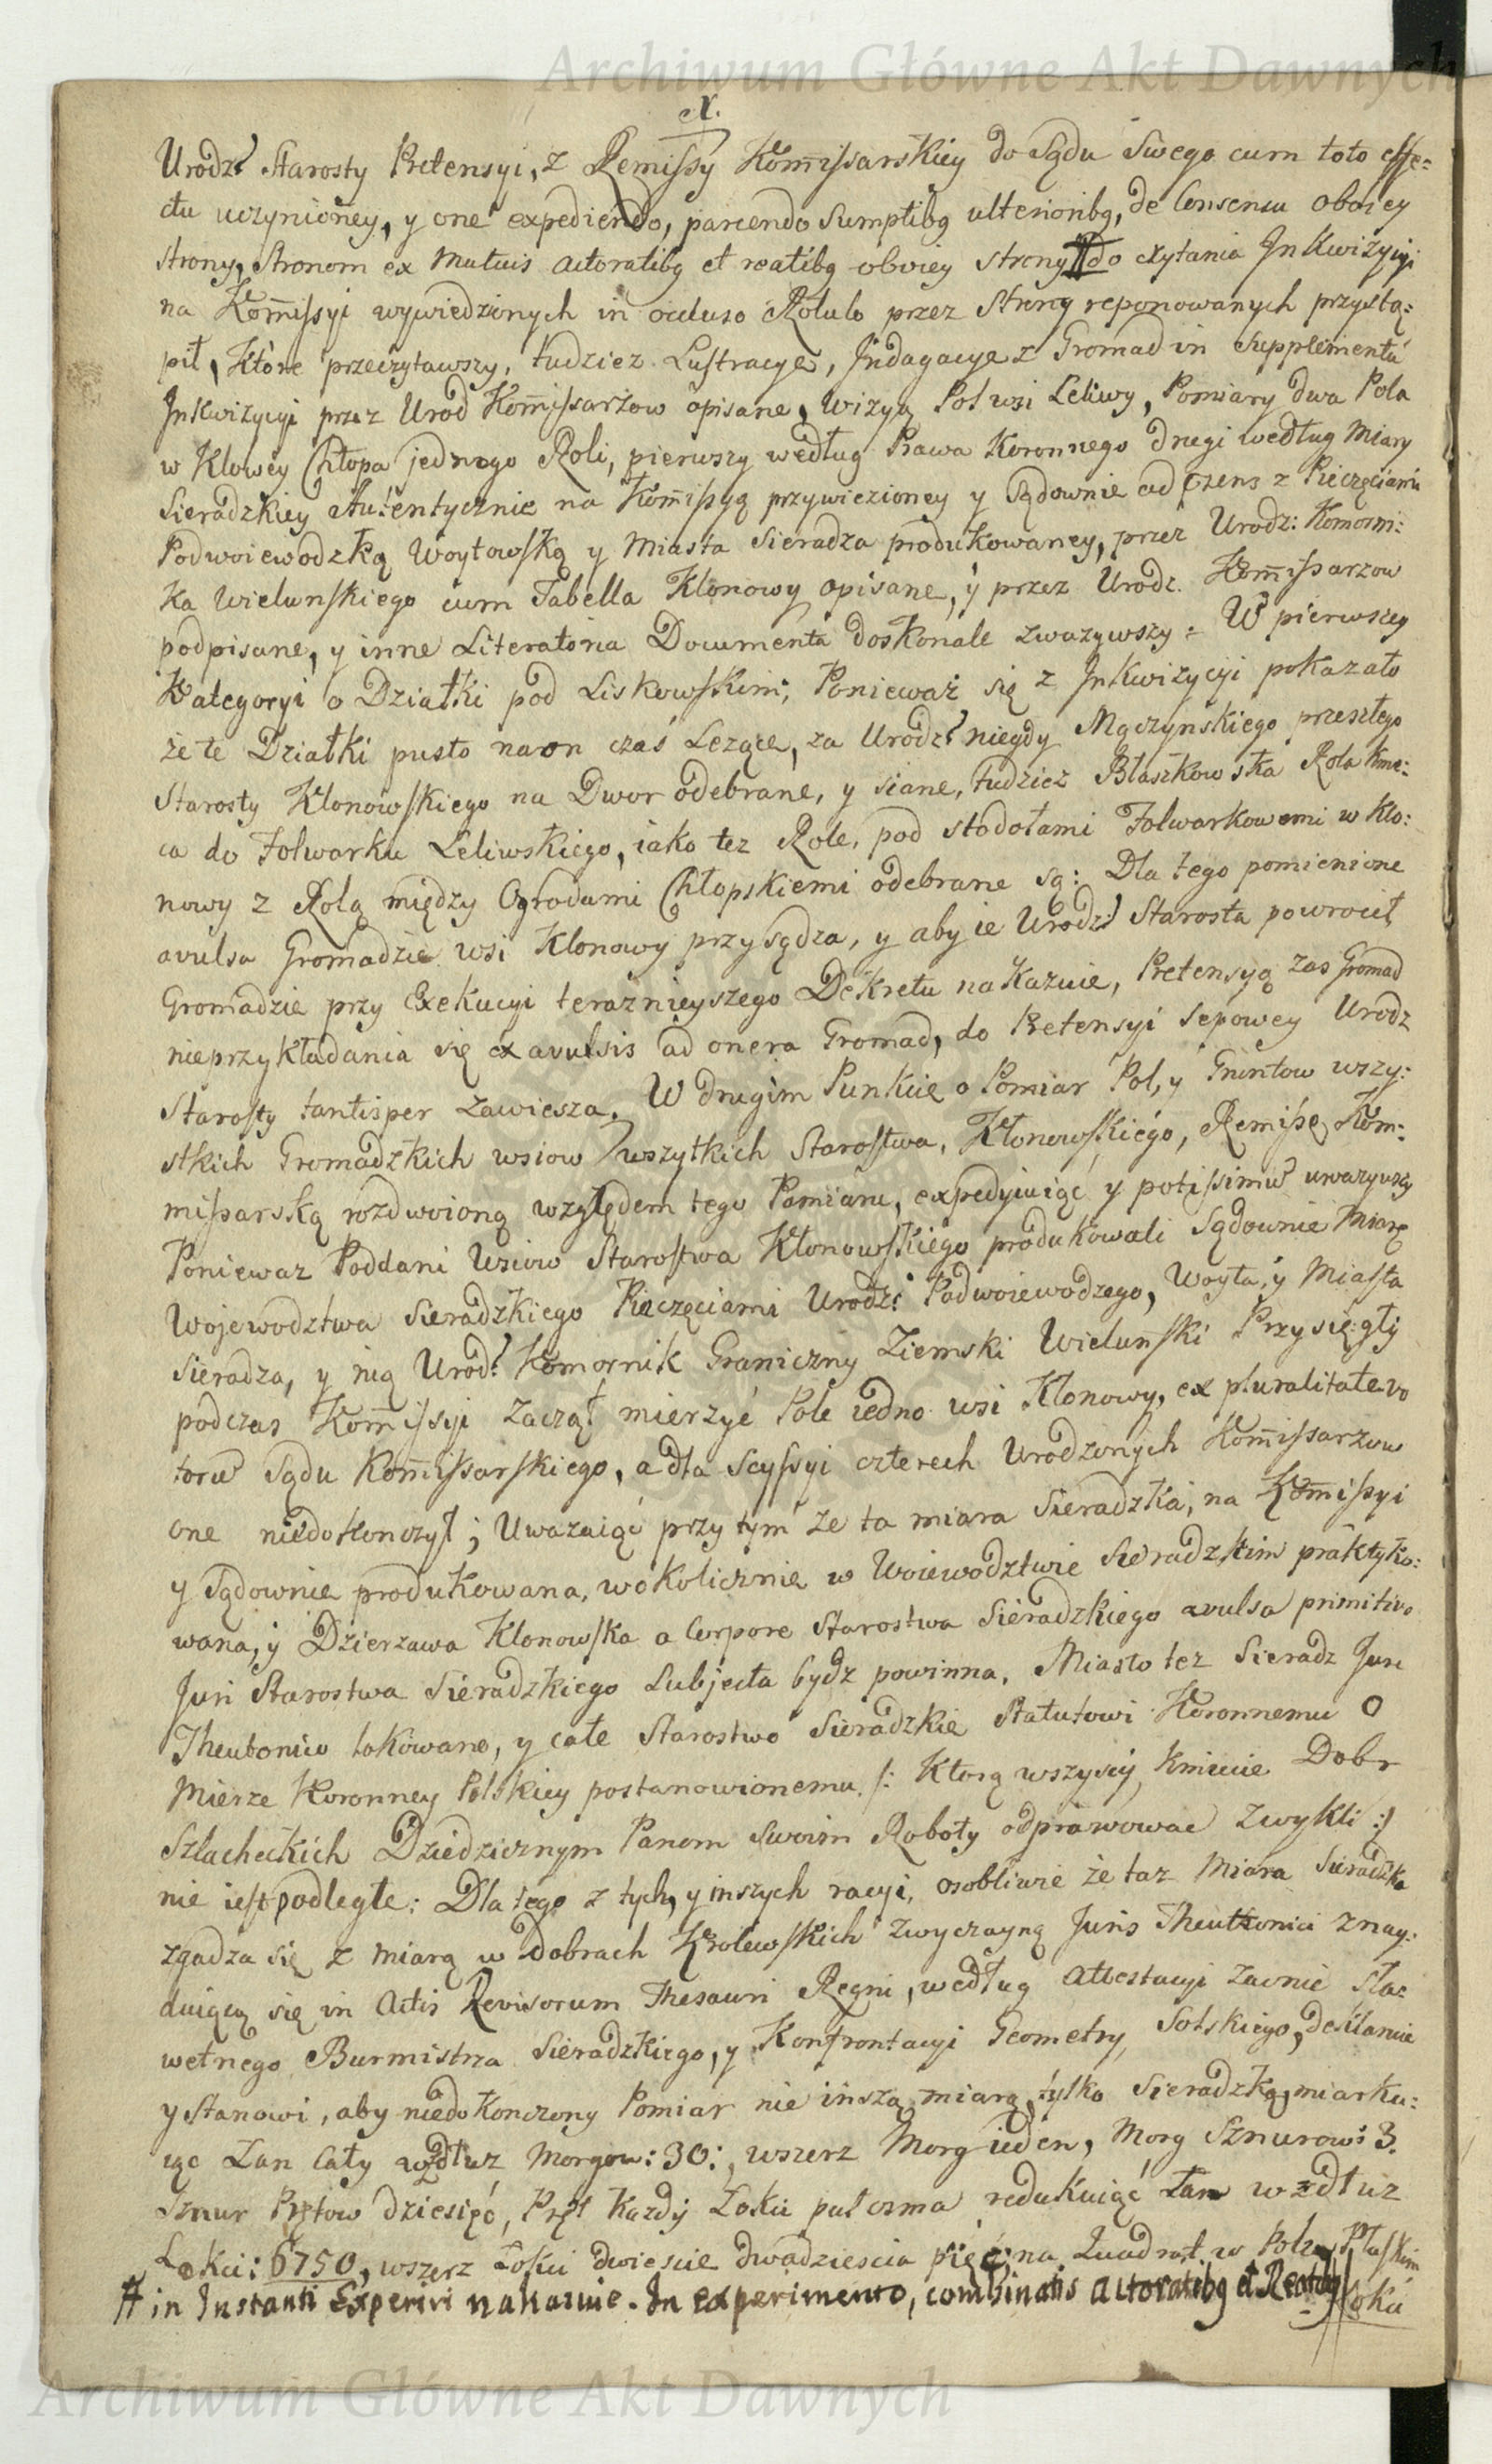 Archiwum Główne Akt Dawnych
X.
Urodz: Starosty Pretensyi, z Remissy Kommissarskiey do Sądu Swego cum toto effe=
ctu uczynioney, y one expediendo, parcendo Sumptibq ulterioribq, de Consensu oboiey
strony, stronom ex mutuis actoratibq et reatibq oboiey strony # do czytania Inkwizycyi
na Kommissyi wywiedzionych in occluso Rotulo przez Strony reponowanych przystą=
pił, które przeczytawszy, tudziez Lustracye, Indagacye z Gromad in Supplementū
Inkwizycyi przez Urod Kommissarzow opisane, Wizyą Pol wsi Leliwy, Pomiary dwa Pola
w Klowey Chłopa jednego Roli, pierwszy według Prawa Koronnego drugi według Miary
Sieradzkiey Autentycznie na Kommissyą przywiezioney y Sądownie ad Czens z Pieczęciami
Podwoiewodzką Woytowską y Miasta Sieradza produkowaney, przez Urodz: Komorni:
ka Wielunskiego cum Tabella Klonowy opisane, y przez Urodz. Kommissarzow
podpisane, y inne Literatoria Documenta doskonale zwazywszy = W pierwszey
Kategoryi o Działki pod Liskowskim, Ponieważ się z Inkwizycyi pokazało
że te Działki pusto na on czas Lezące, za Urodz: niegdy Mączynskiego przeszłego
Starosty Klonowskiego na Dwor odebrane, y siane, tudziez Błaszkowska Rola kme:
ca do Folwarku Leliwskiego, iako tez Role, pod stodołami Folwarkowemi w Klo:
nowy z Rolą między Ogrodami Chłopskiemi odebrane są: Dla tego pomienione
avulsa Gromadzie wsi Klonowy przysądza, y aby ie Urodz: Starosta powrocił
Gromadzie przy Exekucyi teraznieyszego Dekretu nakazuie, Pretensyą zas Gromad
nieprzykładania się ex avulsis ad onera Gromad, do Pretensyi Sepowey Urodz
Starosty tantisper zawiesza, W drugim Punkcie o Pomiar Pol, y Gruntow wszy:
stkich Gromadzkich wsiow wszytkich Starostwa, Klonowskiego, Remissę Kom:
missarską rozdwoioną względem tego Pomiaru, expedyiuiąc y potissimū uwazywszy
Poniewaz Poddani Wsiow Starostwa Klonowskiego produkowali Sądownie Miarę
Wojewodztwa Sieradzkiego Pieczęciami Urodz: Podwoiewodzego, Woyta, y Miasta
Sieradza, y nią Urod: Komornik Graniczny Ziemski Wielunski Przysięgły
podczas Kommissyi zaczął mierzyć Pole iedno wsi Klonowy, ex pluralitate vo
torū Sądu Kommissarskiego, a dla Scyssyi czterech Urodzonych Kommissarzow
one niedokonczył; Uwazaiąc przy tym ze ta miara Sieradzka, na Kommissyi
y Sądownie produkowana, wokolicznie w Woiewodztwie Sieradzkim praktyko:
wana, y Dzierzawa Klonowska a Corpore Starostwa Sieradzkiego avulsa primitivo
Juri Starostwa Sieradzkiego Subjecta bydz powinna, Miasto tez Sieradz Jure
Theutonico lokowane, y całe Starostwo Sieradzkie Statutowi Koronnemu o
Mierze Koronney Polskiey postanowionemu /: Ktorą wszyscy kmiecie Dobr
Szlacheckich Dziedzicznym Panom Swoim Roboty odprawowac zwykli :/
nie iest podległe: Dla tego z tych, y inszych racyi, osobliwie że taz Miara Sieradzka
zgadza się z miarą w Dobrach Krolewskich zwyczayną Juris Theutonici znay:
duiącą się in Actis Revisorum Thesauri Regni, według attestacyi zacnie Sła=
wetnego Burmistrza Sieradzkiego, y Konfrontacyi Geometry, Solskiego, deklaruie
y Stanowi, aby niedokonczony Pomiar nie inszą miarą, tylko Sieradzką, miarku:
iąc Łan Cały wzdłuz Morgow: 30:, wszerz Morg ieden, Morg Sznurow: 3.
Sznur Prętow dziesięc, Pręt kazdy Łokci puł osma redukuiąc Łan wzdłuz
Łokci: 6750, wszerz Łokci dwiescie dwadziescia pięć na Quadrat w Polu Płaskim
# in Instanti Experiri nakazuie. In experimento, combinatis actoratibq et Reatibq
Łokci
Archiwum Główne Akt Dawnych